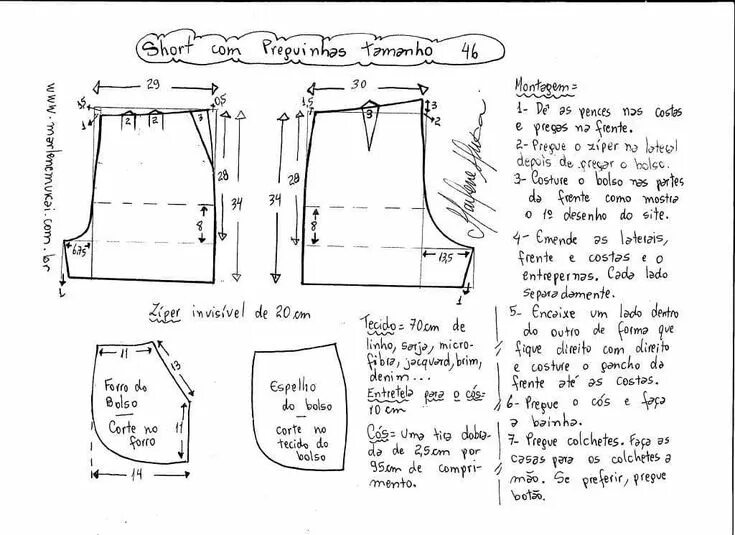 Short com Preguinhas tamanho 46
www.marlenemukai.com.br
29
1,5
0,5
1
2
2
3
28
34
8
6,75
1
30
1,5
3
2
3
34
28
8
13,5
1
Marlene Mukai
Zíper invisível de 20cm
11
13
11
14
Forro do
Bolso
Corte no
forro
Espelho
do bolso
corte no
tecido do
bolso
Tecido= 70cm de
linho, sarja, micro-
fibra, jacquard, brim,
denim...
Entretela para o cós=
10 cm
Cós= Uma tira dobra-
da de 2,5cm por
95cm de compri-
mento.
Montagem=
1- Dê as pences nas costas
e pregas na frente.
2- Pregue o zíper na lateral
depois de pregar o bolso.
3- Costure o bolso nas partes
da frente como mostra
o 1º desenho do site.
4- Emende as laterais,
frente e costas e o
entrepernas. Cada lado
separadamente.
5- Encaixe um lado dentro
do outro de forma que
fique direito com direito
e costure o gancho da
frente até as costas.
6- Pregue o cós e faça
a bainha.
7- Pregue colchetes. Faça as
casas para os colchetes a
mão. Se preferir, pregue
botão.